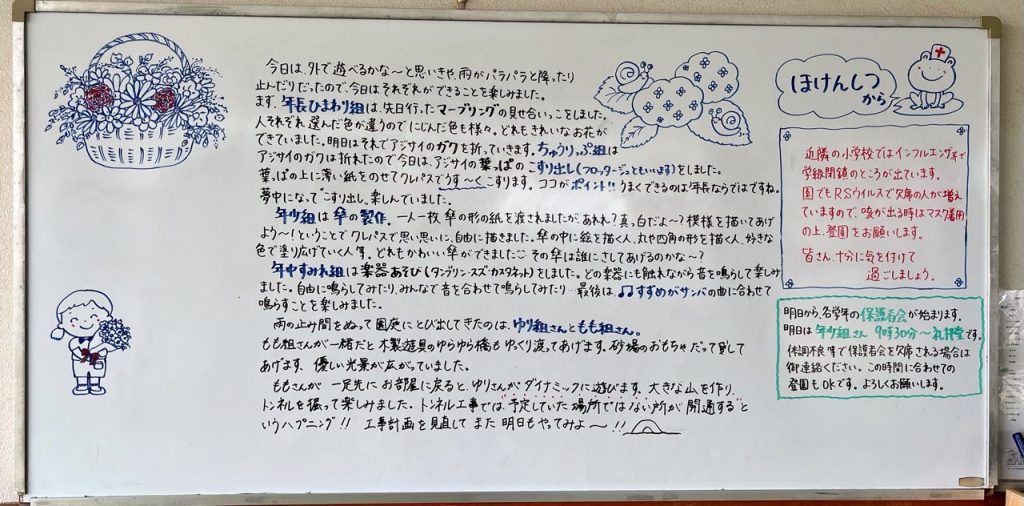 今日は、外で遊べるかな〜と思いきや、雨がパラパラと降ったり
止んだりだったので、今日はそれぞれができることを楽しみました。
まず、年長ひまわり組は、先日行ったマーブリングの見せ合いっこをしました。
人それぞれ選んだ色が違うのでにじんだ色も様々。どれもきれいなお花が
できていました。明日はそれでアジサイのガクを折っていきます。ちゅうりっぷ組は
アジサイのガクは折れたので今日は、アジサイの葉っぱのこすり出し(フロッタージュともいいます)をしました。
葉っぱの上に薄い紙をのせてクレパスでうす〜くこすります。ココがポイント!!うまくできるのは年長ならではですね。
夢中になってこすり出し、楽しんでいました。
年少組は傘の製作。一人一枚 傘の形の紙を渡されましたが、あれれ?真っ白だよ〜?模様を描いてあげ
よう〜!ということでクレパスで思い思いに、自由に描きました。傘の中に絵を描く人、丸や四角の形を描く人、好きな
色で塗り広げていく人等、どれもかわいい傘ができました。その傘は誰にさしてあげるのかな〜?
年中すみれ組は楽器あそび(タンブリン・スズ・カスタネット)をしました。どの楽器にも触れながら音を鳴らして楽しみ
ました。自由に鳴らしてみたり、みんなで音を合わせて鳴らしてみたり…最後は、♫すずめがサンバの曲に合わせて
鳴らすことを楽しみました。
雨の止み間をぬって園庭にとび出してきたのは、ゆり組さんともも組さん。
もも組さんが一緒だと木製遊具のゆらゆら橋もゆっくり渡ってあげます。砂場のおもちゃだって貸して
あげます。優しい光景が広がっていました。
ももさんが一足先にお部屋に戻ると、ゆりさんがダイナミックに遊びます。大きな山を作り、
トンネルを掘って楽しみました。トンネル工事では、予定していた場所ではない所が開通すると
いうハプニング!! 工事計画を見直してまた明日もやってみよ〜!!
ほけんしつ
から
近隣の小学校ではインフルエンザ等で
学級閉鎖のところが出ています。
園でもRSウイルスで欠席の人が増え
ていますので、咳が出る時はマスク着用
の上、登園をお願いします。
皆さん、十分に気を付けて
過ごしましょう。
明日から、各学年の保護者会が始まります。
明日は年少組さん 9時30分〜礼拝堂です。
体調不良等で保護者会を欠席される場合は
御連絡ください。この時間に合わせての
登園もOKです。よろしくお願いします。